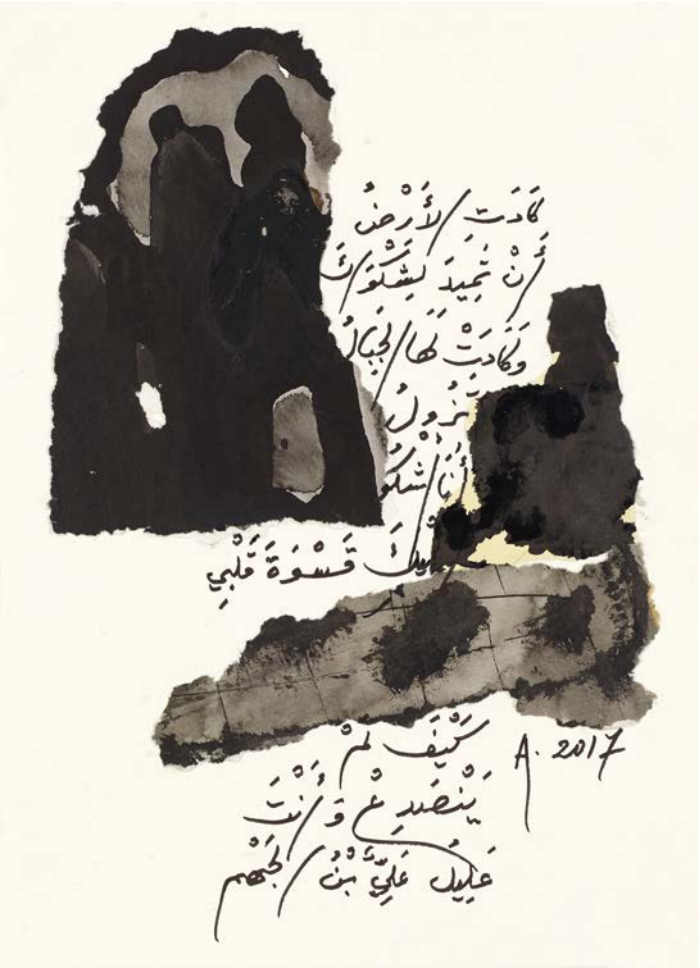 كَادَتِ الأَرْضُ
أَنْ تَمِيدَ لِشَكْوَاكَ
وَكَادَتْ لَهَا الجِبَالُ
تَزُولُ
أَنَا أَشْكُو
إِلَيْكَ قَسْوَةَ قَلْبِي
كَيْفَ لَمْ
يَنْصَدِعْ وَأَنْتَ
عَلِيلُ عَلِيُّ بْنُ الجَهْم
A. 2017